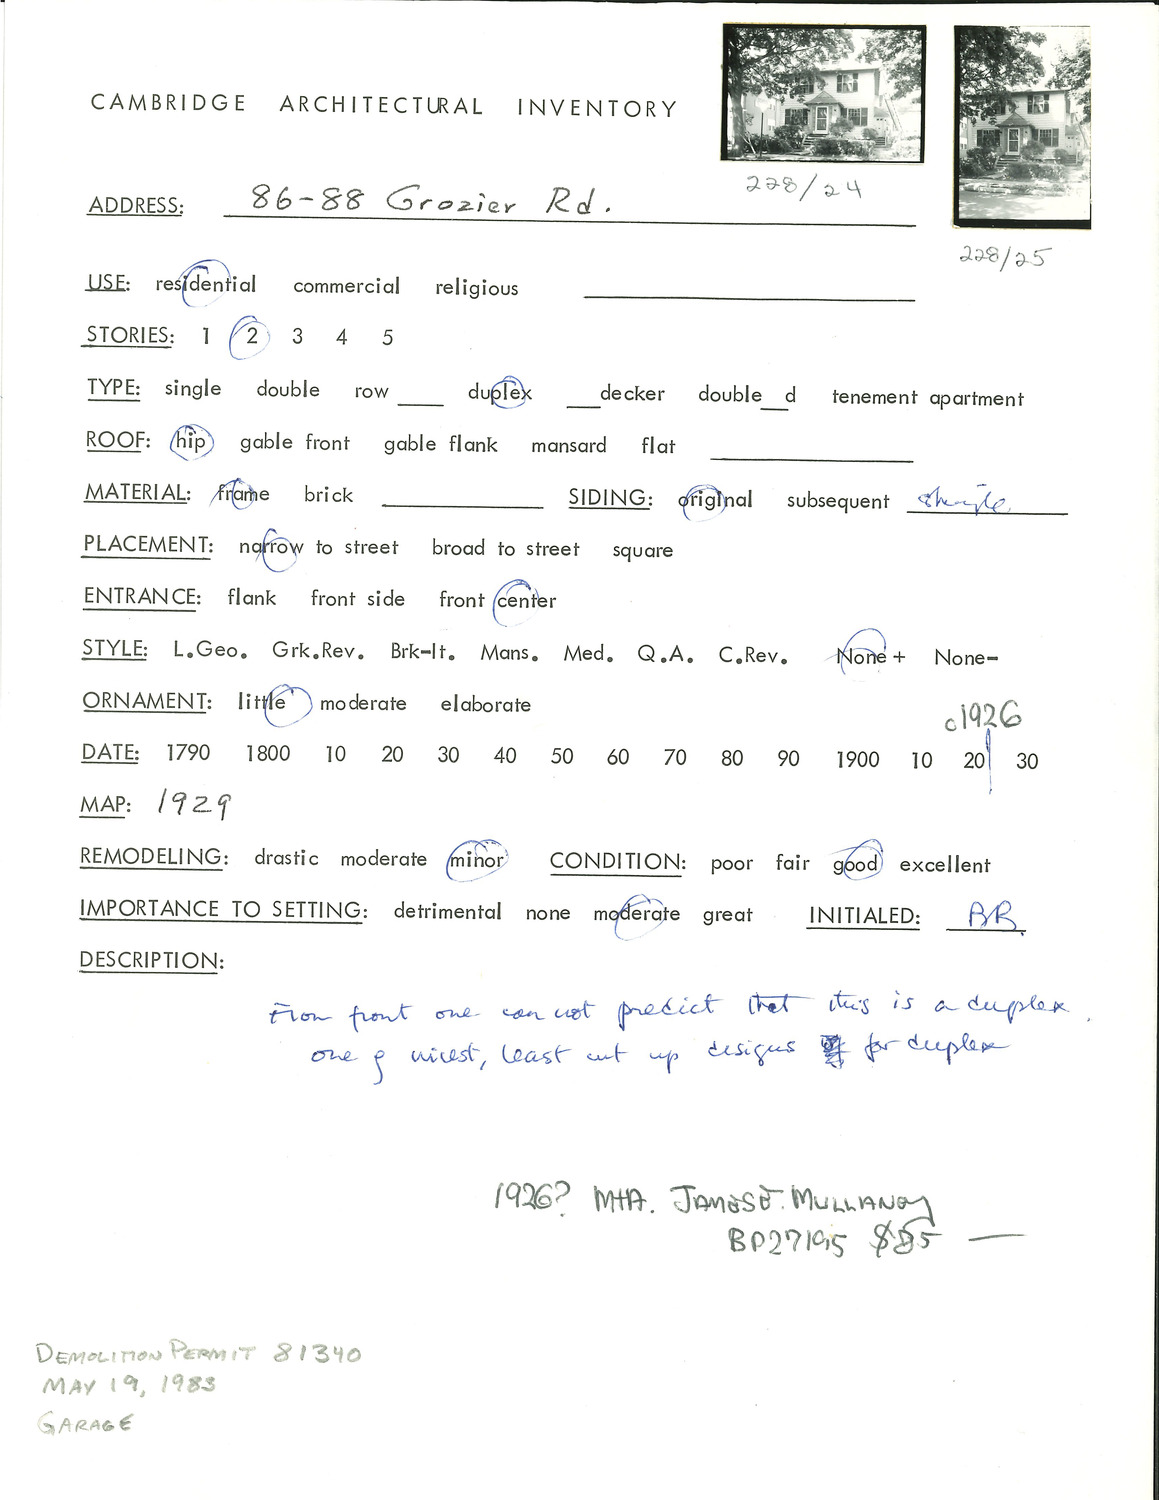 CAMBRIDGE ARCHITECTURAL INVENTORY
228/24
228/25
ADDRESS: 86-88 Grozier Rd.
USE: residential commercial religious
STORIES: 1 2 3 4 5
TYPE: single double row ____ duplex ___decker double__d tenement apartment
ROOF: hip gable front gable flank mansard flat
MATERIAL: frame brick SIDING: original subsequent shingle
PLACEMENT: narrow to street broad to street square
ENTRANCE: flank front side front center
STYLE: L.Geo. Grk.Rev. Brk-It. Mans. Med. Q.A. C.Rev. None+ None-
ORNAMENT: little moderate elaborate
c1926
DATE: 1790 1800 10 20 30 40 50 60 70 80 90 1900 10 20 30
MAP: 1929
REMODELING: drastic moderate minor CONDITION: poor fair good excellent
IMPORTANCE TO SETTING: detrimental none moderate great INITIALED: BR
DESCRIPTION:
From front one can not predict that this is a duplex.
one of nicest, least cut up designs for duplex
1926? MHA. JAMES E. MULLANEY
BP27195
DEMOLITION PERMIT 81340
MAY 19, 1983
GARAGE